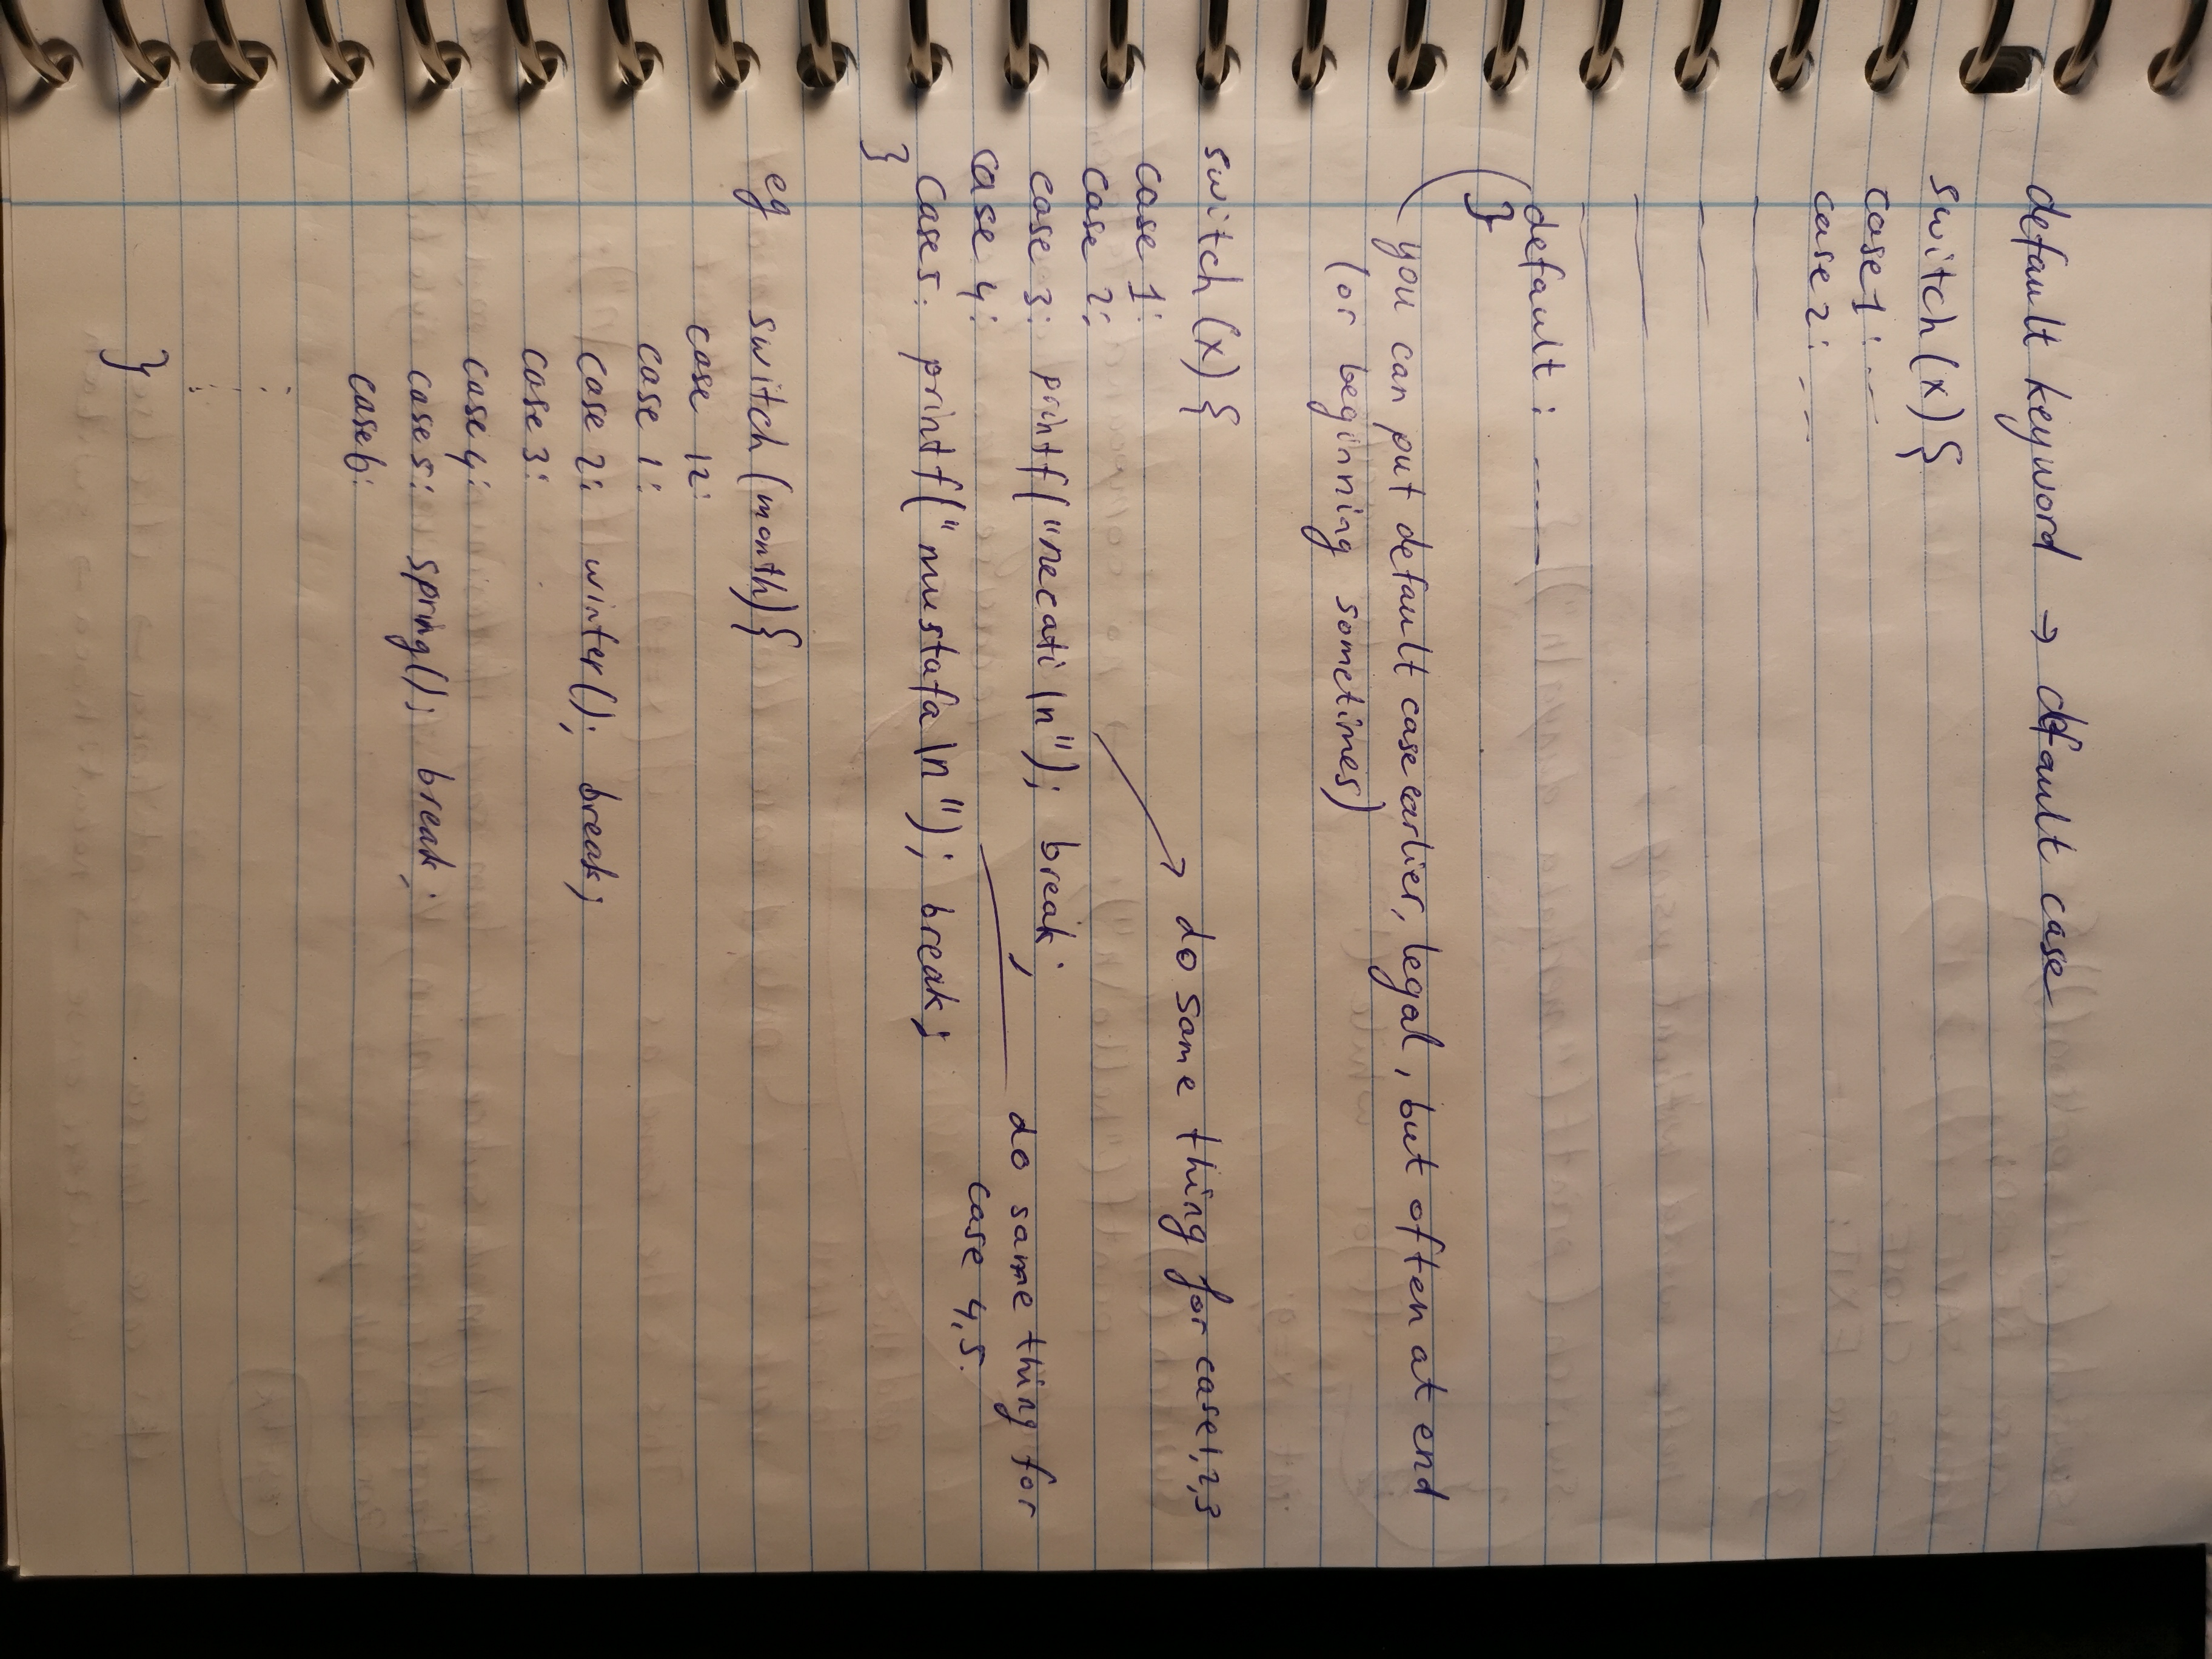 default keyword → default case
switch (x) {
case 1: ---
case 2: ---
default : -----
}
you can put default case earlier, legal, but often at end
(or beginning sometimes)
switch (x) {
do same thing for case 1,2,3
case 1:
case 2:
case 3: printf("necati \n"); break;
do same thing for
case 4:
case 4,5.
case 5: printf("mustafa \n"); break;
}
eg switch (month) {
case 12:
case 1:
case 2: winter(); break;
case 3:
case 4:
case 5: spring(); break;
case 6:
}